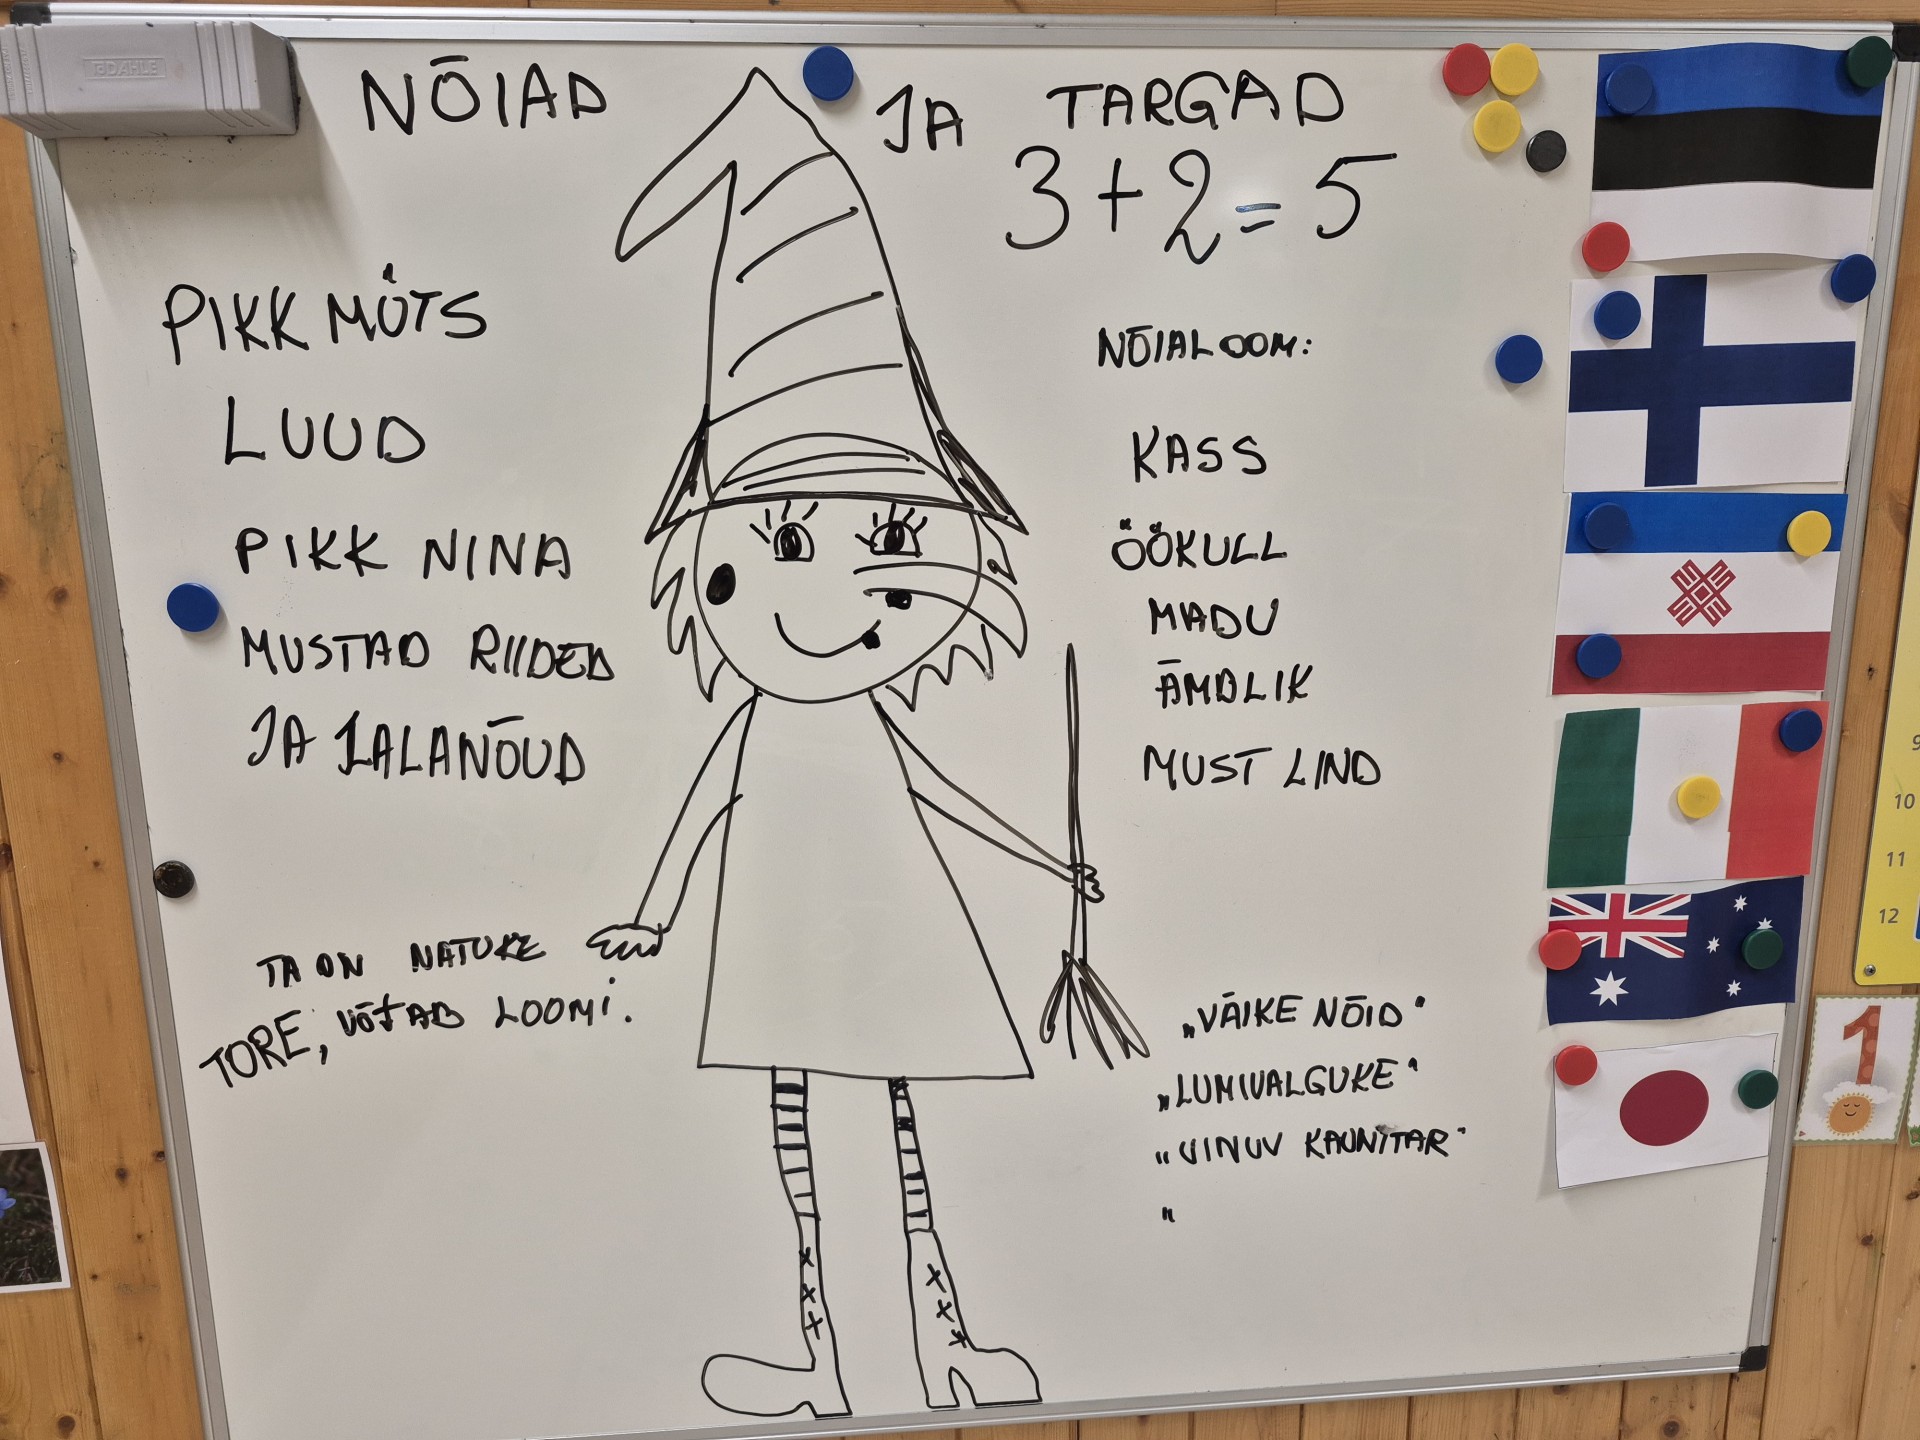 DAHLE
NÕIAD JA TARGAD
3 + 2 = 5
PIKK MÜTS
LUUD
PIKK NINA
MUSTAD RIIDED
JA JALANÕUD
TA ON NATUKE
TORE, VÕTAB LOOMI.
NÕIALOOM:
KASS
ÖÖKULL
MADU
ÄMBLIK
MUST LIND
„VÄIKE NÕID"
„LUMIVALGUKE"
"UINUV KAUNITAR"
"
9
10
11
12
1